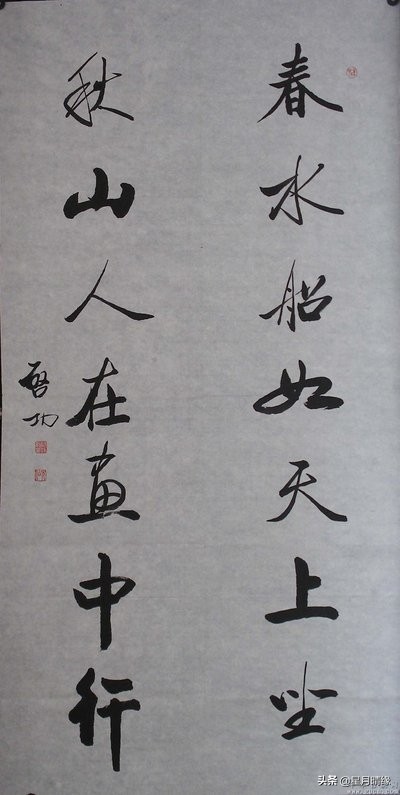 春水船如天上坐
秋山人在画中行
启功
头条 @星月晴缘